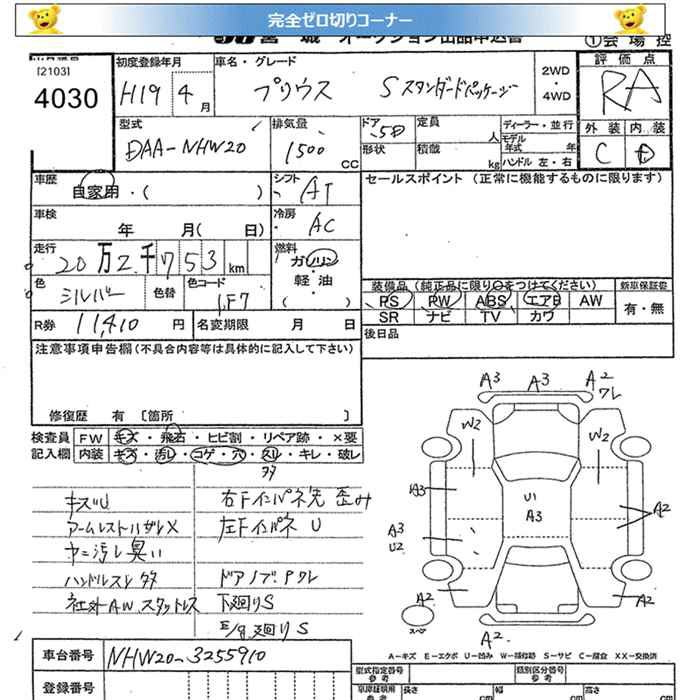 完全ゼロ切りコーナー
宮城 オークション出品申込書 ①会場控
[2103]
4030
初度登録年月
H19 4月
車名・グレード
プリウス Sスタンダードパッケージ
2WD・4WD
評価点
RA
外装 内装
C D
型式
DAA-NHW20
排気量
1500 CC
ドア 5D
形状
定員 人
積載 kg
ディーラー・並行
モデル年式 年
ハンドル 左・右
車歴
自家用・( )
シフト AT
セールスポイント (正常に機能するものに限ります)
車検 年 月( 日)
冷房 AC
走行
20万2千753km
燃料
ガソリン
軽油
( )
色
シルバー
色替
色コード
1F7
装備品(純正品に限り○をつけてください)
新車保証書
PS PW ABS エアB AW
SR ナビ TV カワ
有・無
R券 11,410円
名変期限 月 日
後日品
注意事項申告欄(不具合内容等は具体的に記入して下さい)
修復歴 有 〔箇所 〕
検査員記入欄
FW キズ・飛石・ヒビ割・リペア跡・×要
内装 キズ・汚れ・コゲ・穴・スリ・キレ・破レ
タタ
キズU
アームレストハガレ×
ヤニ汚レ臭い
ハンドルスレ タタ
社外AW スタットレス
右Fインパネ先 歪み
左Fインパネ U
ドアノブ・Pワレ
下廻りS
E/g廻りS
A3 A3 A2
ワレ
W2 W2
A3
U1
A3
A2
A3
U2
A2 A2
スペア
A2
A−キズ E−エクボ U−凹み W−補修跡 S−サビ C−腐食 XX−交換済
車台番号 NHW20-3255910
型式指定番号 参考
類別区分番号 参考
登録番号
車庫証明用 参考
長さ cm 幅 cm 高さ cm